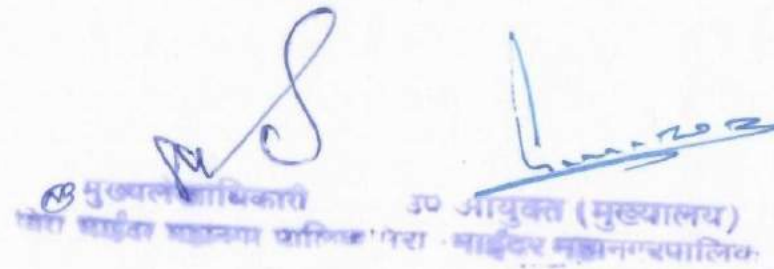 मुख्यलेखाधिकारी
मिरा भाईंदर महानगर पालिका
उप आयुक्त (मुख्यालय)
मिरा भाईंदर महानगरपालिका